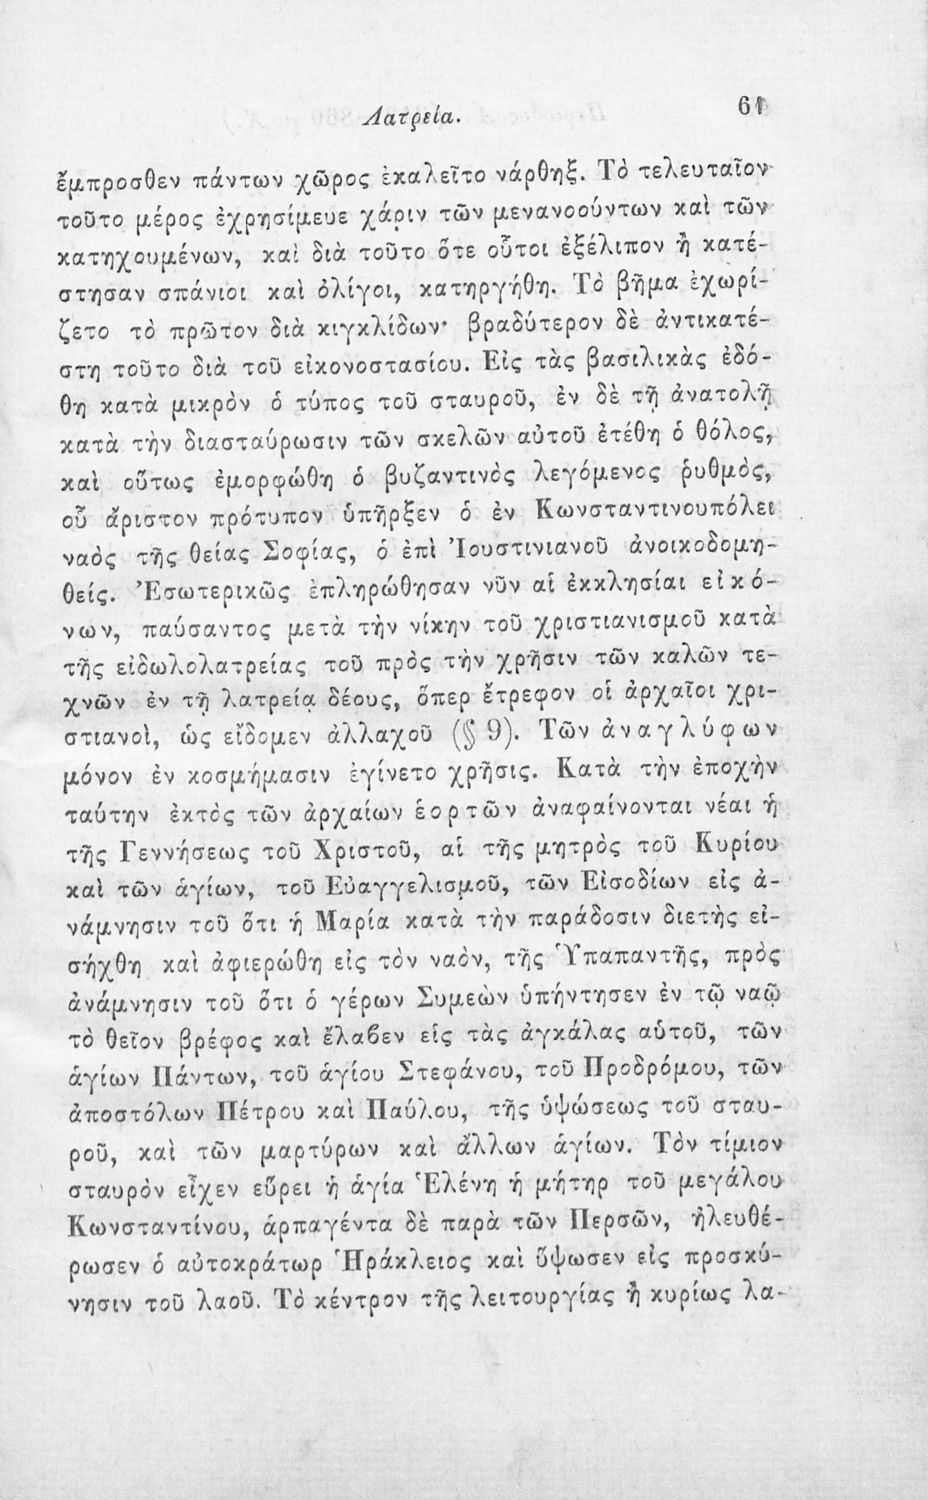 Λατρεία.
61
ἔμπροσθεν πάντων χῶρος ἐκαλεῖτο νάρθηξ. Τὸ τελευταῖον
τοῦτο μέρος ἐχρησίμευε χάριν τῶν μενανοούντων καὶ τῶν
κατηχουμένων, καὶ διὰ τοῦτο ὅτε οὗτοι ἐξέλιπον ἢ κατέ-
στησαν σπάνιοι καὶ ὀλίγοι, κατηργήθη. Τὸ βῆμα ἐχωρί-
ζετο τὸ πρῶτον διὰ κιγκλίδων· βραδύτερον δὲ ἀντικατέ-
στη τοῦτο διὰ τοῦ εἰκονοστασίου. Εἰς τὰς βασιλικὰς ἐδό-
θη κατὰ μικρὸν ὁ τύπος τοῦ σταυροῦ, ἐν δὲ τῇ ἀνατολῇ
κατὰ τὴν διασταύρωσιν τῶν σκελῶν αὐτοῦ ἐτέθη ὁ θόλος,
καὶ οὕτως ἐμορφώθη ὁ βυζαντινὸς λεγόμενος ῥυθμὸς,
οὗ ἄριστον πρότυπον ὑπῆρξεν ὁ ἐν Κωνσταντινουπόλει
ναὸς τῆς θείας Σοφίας, ὁ ἐπὶ Ἰουστινιανοῦ ἀνοικοδομη-
θείς. Ἐσωτερικῶς ἐπληρώθησαν νῦν αἱ ἐκκλησίαι εἰκό-
νων, παύσαντος μετὰ τὴν νίκην τοῦ χριστιανισμοῦ κατὰ
τῆς εἰδωλολατρείας τοῦ πρὸς τὴν χρῆσιν τῶν καλῶν τε-
χνῶν ἐν τῇ λατρείᾳ δέους, ὅπερ ἔτρεφον οἱ ἀρχαῖοι χρι-
στιανοὶ, ὡς εἴδομεν ἀλλαχοῦ (§ 9). Τῶν ἀναγλύφων
μόνον ἐν κοσμήμασιν ἐγίνετο χρῆσις. Κατὰ τὴν ἐποχὴν
ταύτην ἐκτὸς τῶν ἀρχαίων ἑορτῶν ἀναφαίνονται νέαι ἡ
τῆς Γεννήσεως τοῦ Χριστοῦ, αἱ τῆς μητρὸς τοῦ Κυρίου
καὶ τῶν ἁγίων, τοῦ Εὐαγγελισμοῦ, τῶν Εἰσοδίων εἰς ἀ-
νάμνησιν τοῦ ὅτι ἡ Μαρία κατὰ τὴν παράδοσιν διετὴς εἰ-
σήχθη καὶ ἀφιερώθη εἰς τὸν ναὸν, τῆς Ὑπαπαντῆς, πρὸς
ἀνάμνησιν τοῦ ὅτι ὁ γέρων Συμεὼν ὑπήντησεν ἐν τῷ ναῷ
τὸ θεῖον βρέφος καὶ ἔλαβεν εἰς τὰς ἀγκάλας αὑτοῦ, τῶν
ἁγίων Πάντων, τοῦ ἁγίου Στεφάνου, τοῦ Προδρόμου, τῶν
ἀποστόλων Πέτρου καὶ Παύλου, τῆς ὑψώσεως τοῦ σταυ-
ροῦ, καὶ τῶν μαρτύρων καὶ ἄλλων ἁγίων. Τὸν τίμιον
σταυρὸν εἶχεν εὕρει ἡ ἁγία Ἑλένη ἡ μήτηρ τοῦ μεγάλου
Κωνσταντίνου, ἁρπαγέντα δὲ παρὰ τῶν Περσῶν, ἠλευθέ-
ρωσεν ὁ αὐτοκράτωρ Ἡράκλειος καὶ ὕψωσεν εἰς προσκύ-
νησιν τοῦ λαοῦ. Τὸ κέντρον τῆς λειτουργίας ἢ κυρίως λα-